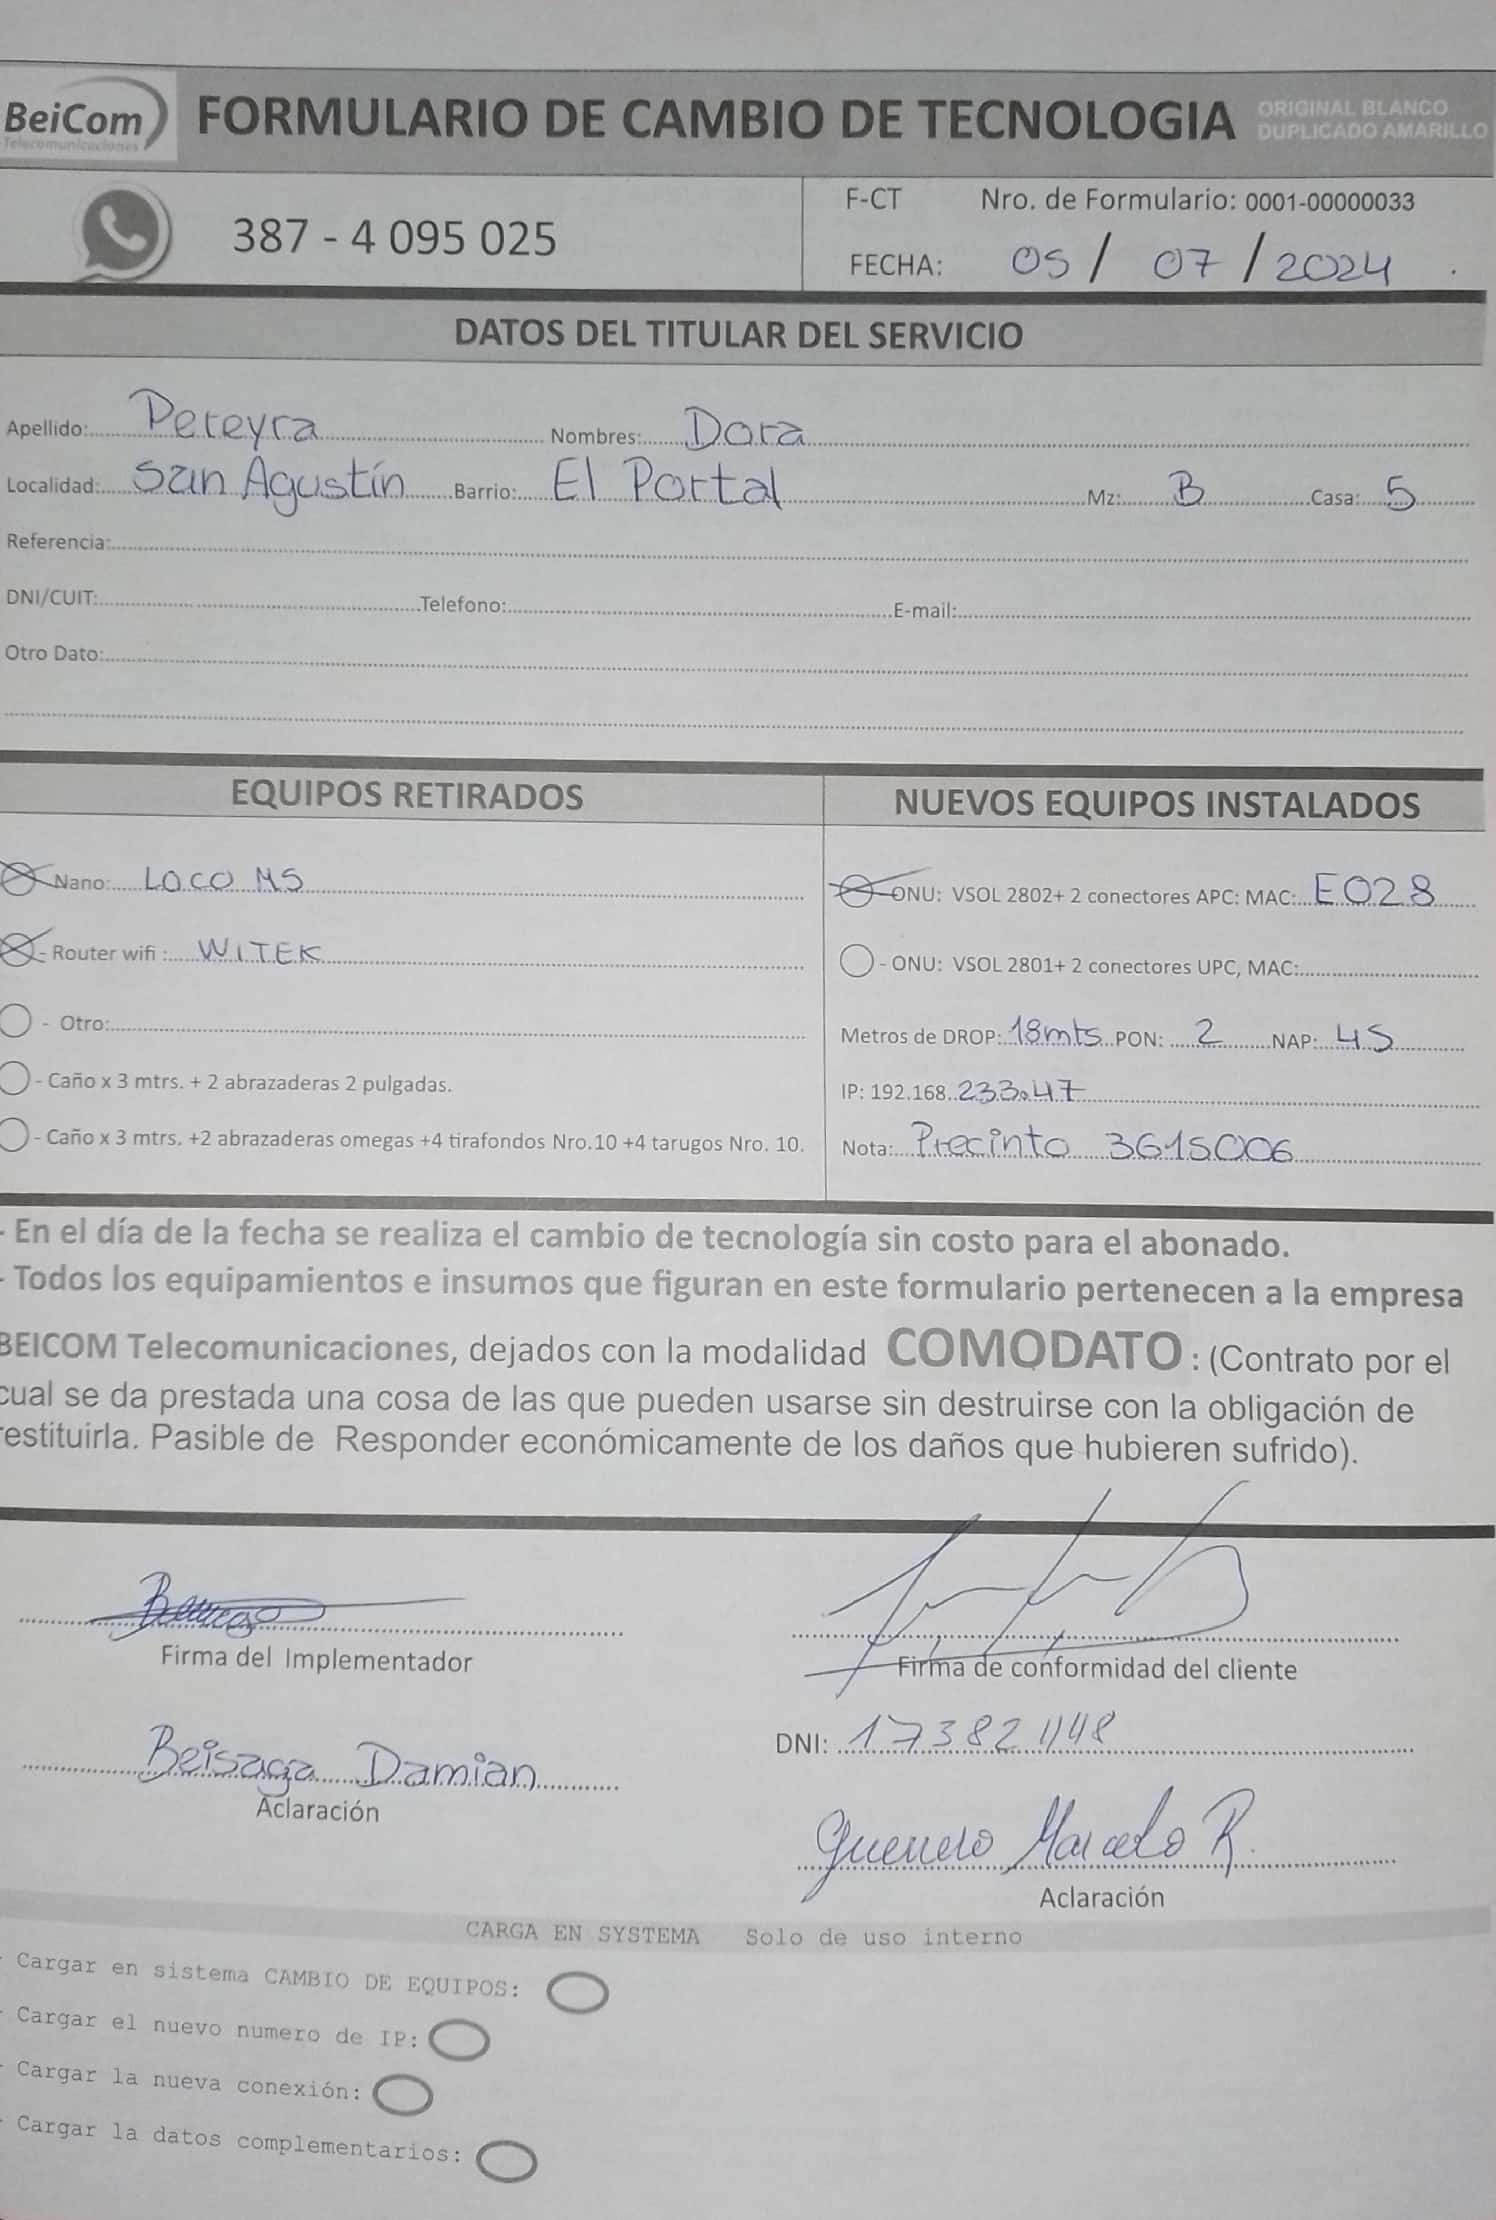 BeiCom Telecomunicaciones FORMULARIO DE CAMBIO DE TECNOLOGIA ORIGINAL BLANCO DUPLICADO AMARILLO
387 - 4 095 025
F-CT Nro. de Formulario: 0001-00000033
FECHA: 05 / 07 / 2024
DATOS DEL TITULAR DEL SERVICIO
Apellido: Pereyra Nombres: Dora
Localidad: San Agustín Barrio: El Portal Mz: B Casa: 5
Referencia:
DNI/CUIT: Telefono: E-mail:
Otro Dato:
EQUIPOS RETIRADOS
Nano: LOCO M5
- Router wifi : WITEK
- Otro:
- Caño x 3 mtrs. + 2 abrazaderas 2 pulgadas.
- Caño x 3 mtrs. +2 abrazaderas omegas +4 tirafondos Nro.10 +4 tarugos Nro. 10.
NUEVOS EQUIPOS INSTALADOS
ONU: VSOL 2802+ 2 conectores APC: MAC: E028
- ONU: VSOL 2801+ 2 conectores UPC, MAC:
Metros de DROP: 18mts PON: 2 NAP: 45
IP: 192.168. 233.47
Nota: Precinto 3615006
- En el día de la fecha se realiza el cambio de tecnología sin costo para el abonado.
- Todos los equipamientos e insumos que figuran en este formulario pertenecen a la empresa
BEICOM Telecomunicaciones, dejados con la modalidad COMODATO : (Contrato por el
cual se da prestada una cosa de las que pueden usarse sin destruirse con la obligación de
restituirla. Pasible de Responder económicamente de los daños que hubieren sufrido).
Firma del Implementador
Firma de conformidad del cliente
Beisaga Damian
Aclaración
DNI: 17382148
Guerrero Marcelo R.
Aclaración
CARGA EN SYSTEMA Solo de uso interno
- Cargar en sistema CAMBIO DE EQUIPOS:
- Cargar el nuevo numero de IP:
- Cargar la nueva conexión:
- Cargar la datos complementarios: